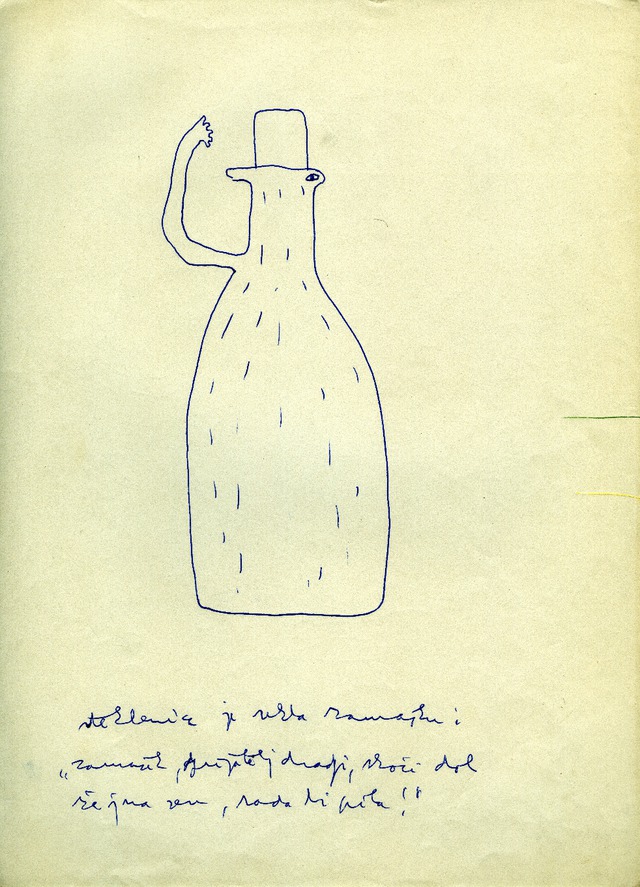 steklenica je rekla zamašku :
„zamašek, prijatelj dragi, skoči dol
žejna sem, rada bi pila!"